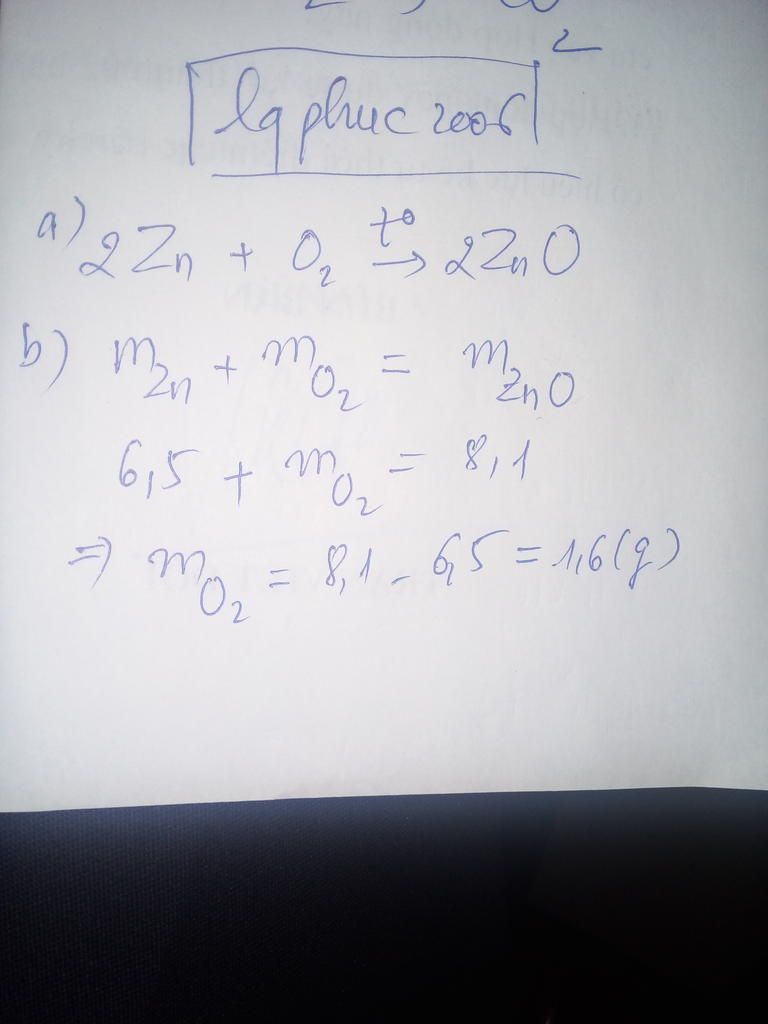 lqphuc2006
a) 2Zn + O₂ t° → 2ZnO
b) m_Zn + m_O₂ = m_ZnO
6,5 + m_O₂ = 8,1
=> m_O₂ = 8,1 - 6,5 = 1,6(g)